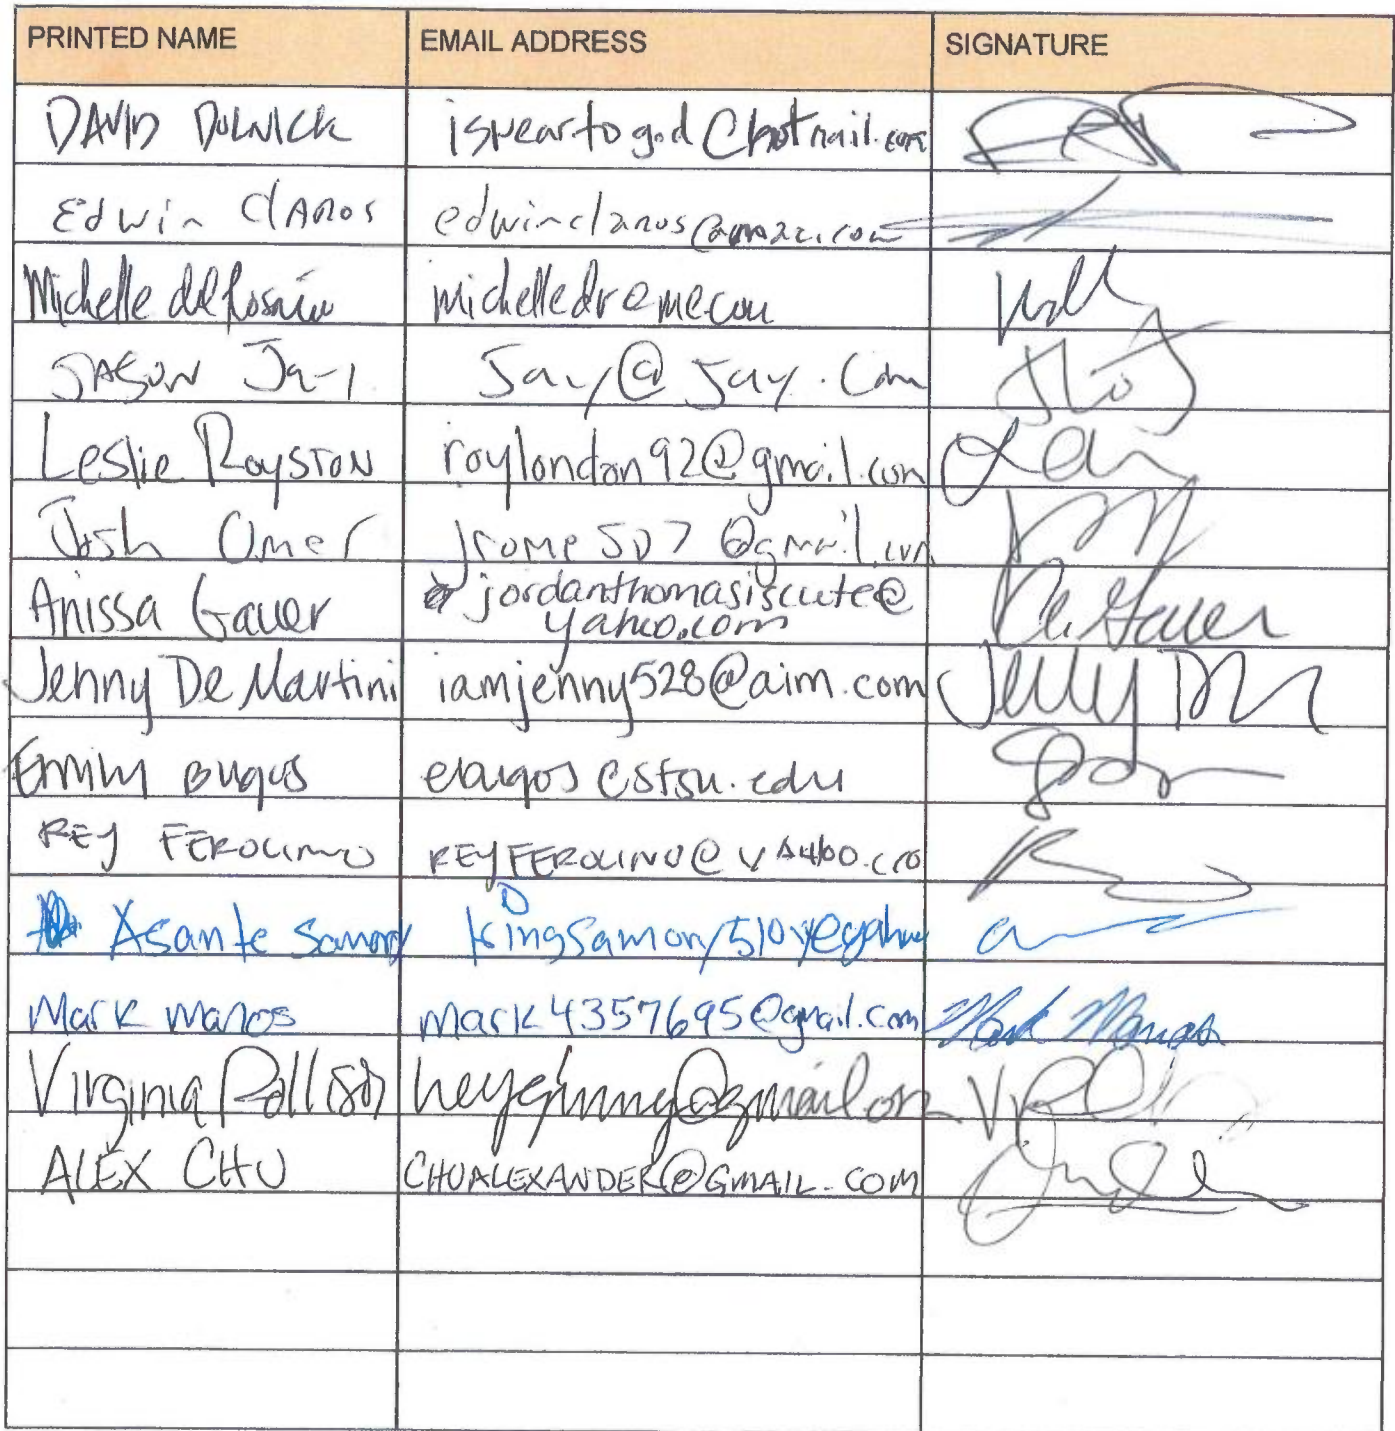 PRINTED NAME EMAIL ADDRESS SIGNATURE
DAVID DULNICK isweartogod@hotmail.com
Edwin Claros edwinclaros@
Michelle del Rosario michelledr@me.com
JASON Jay Jay@Jay.com
Leslie Royston roylondon92@gmail.com
Josh Omer jrome507@gmail.com
Anissa Gauer jordanthomasiscute@
yahoo.com A. Gauer
Jenny De Martini iamjenny528@aim.com Jenny DM
Emily Bugos ebugos@sfsu.edu
REY FEROLINO REYFEROLINO@YAHOO.CO
Asante Samory KingSamory510@yahoo
Mark Manos mark4357695@gmail.com Mark Manos
Virginia heyginny@gmail.com
ALEX CHU CHUALEXANDER@GMAIL.COM